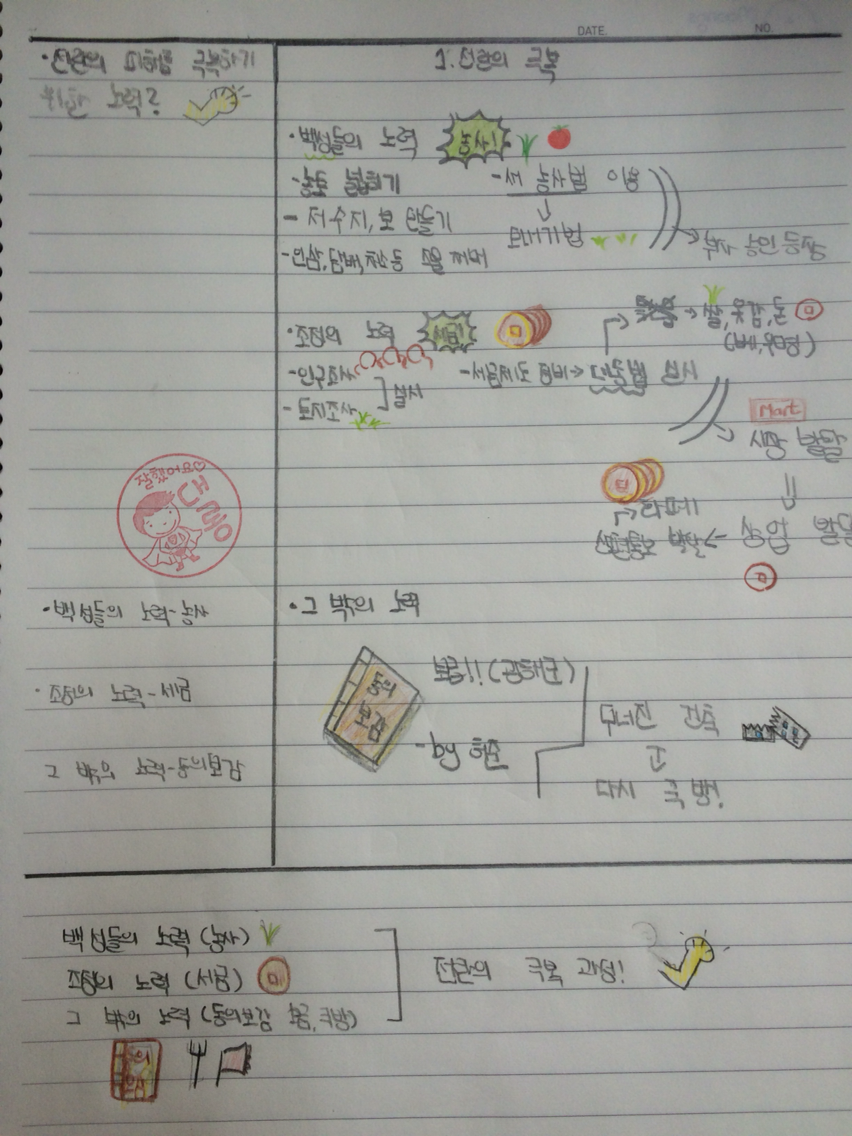 DATE NO.
·전란의 피해를 극복하기
위한 노력?
1. 전란의 극복
·백성들의 노력 농사!
-농토 넓히기
-새 농사법 이용
↓
모내기법
- 저수지, 보 만들기
-인삼, 담배, 채소 등
→부자 농민 등장
·조정의 노력 세금!
→쌀, 옷감, 돈
-인구조사
- 토지조사
실시
-세금제도 정비→대동법 실시
Mart
시장 발달
⇓
상업 발달
→화폐
잘했어요♡
·백성들의 노력-농사
·조정의 노력-세금
그 밖의 노력-동의보감
·그 밖의 노력
동의
보감
보급!!(광해군)
-by 허준
무너진 건축
다시 국방.
백성들의 노력 (농사)
조정의 노력 (세금)
그 밖의 노력 (동의보감 보급, 국방)
전란의 극복 과정!